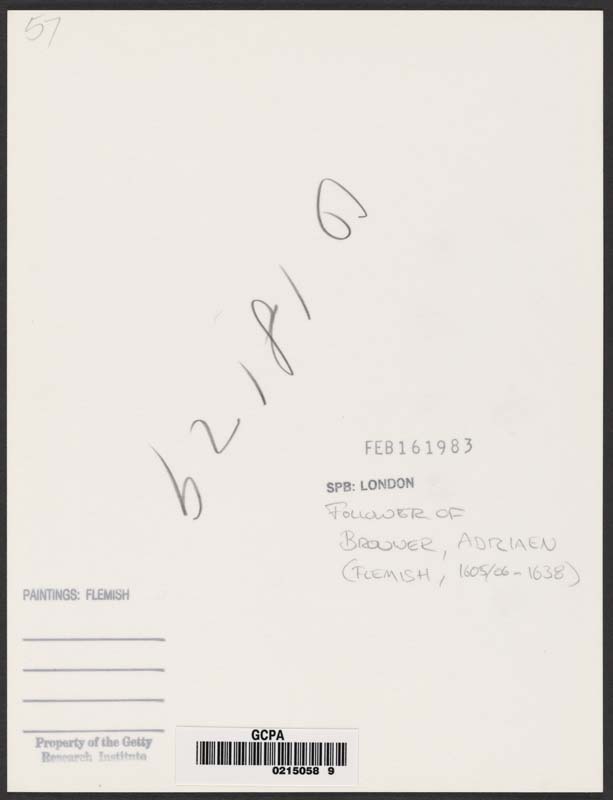 57
b21816
FEB161983
SPB: LONDON
FOLLOWER OF
BROUWER, ADRIAEN
(FLEMISH, 1605/06-1638)
PAINTINGS: FLEMISH
Property of the Getty
Research Institute
GCPA
0215058 9